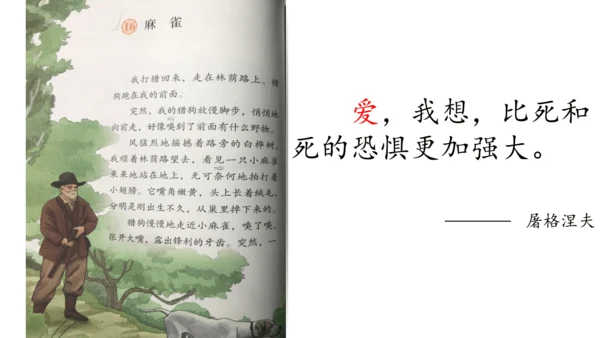 16 麻雀
我打猎回来，走在林荫路上。猎
狗跑在我的前面。
突然，我的猎狗放慢脚步，悄悄地
向前走，好像嗅到了前面有什么野物。
风猛烈地摇撼着路旁的白桦树。
我顺着林荫路望去，看见一只小麻雀
呆呆地站在地上，无可奈何地拍打着
小翅膀。它嘴角嫩黄，头上长着绒毛，
分明是刚出生不久，从巢里掉下来的。
猎狗慢慢地走近小麻雀，嗅了嗅，
张开大嘴，露出锋利的牙齿。突然，一
爱，我想，比死和
死的恐惧更加强大。
——— 屠格涅夫